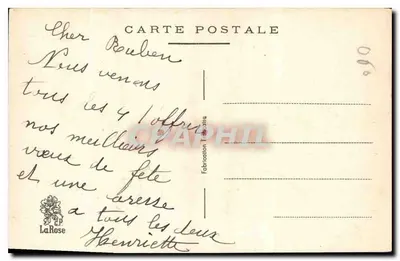 CARTE POSTALE
Cher Ruben
Nous venons
tous les 4 t'offrir
nos meilleurs
vœux de fête
et une caresse
a tous les deux
Henriette
LaRose
Fabrication Française
CPAPHIL
0,60